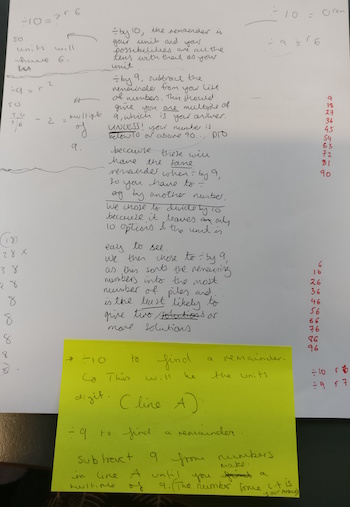 ÷10 = r 6
so
units will
have 6.
÷9 = r 2
so
- 2 = multiple
of
9.
÷by 10, the remainder is
your unit and your
possibilities are all the
tens with that as your
unit
÷by 9, subtract the
remainder from your list
of numbers. This should
give you one multiple of
9, which is your answer.
UNLESS! your number is
below 10 or above 90... PTO
because these will
have the same
remainder when ÷ by 9,
so you have to ÷
eg by another number.
We chose to divide by 10
because it leaves only
10 options & the unit is
easy to see
We then chose to ÷ by 9,
as this sorts the remaining
numbers into the most
number of piles and
is the least likely to
give two or
more solutions
÷ 10 = 0 rem
÷ 9 = r 6
9
18
27
36
45
54
63
72
81
90
6
16
26
36
46
56
66
76
86
96
÷10 r 8
÷9 r 7
(18)
28 x
38
48
8
8
8
8
8
→ ÷10 to find a remainder.
↳ This will be the units
digit. (line A)
÷9 to find a remainder
Subtract 9 from numbers
in line A until you make a
multiple of 9. (The number